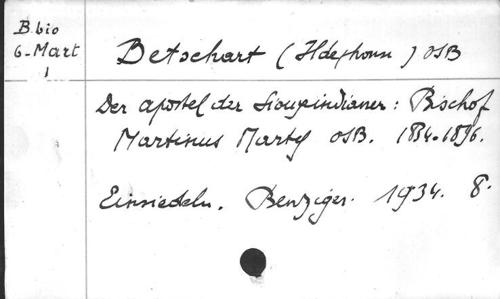 B. bio
6-Mart
1
Betschart (Ildefons) OSB
Der Apostel der Siouxindianer: Bischof
Martinus Marty OSB. 1834-1896.
Einsiedeln. Benziger. 1934. 8.